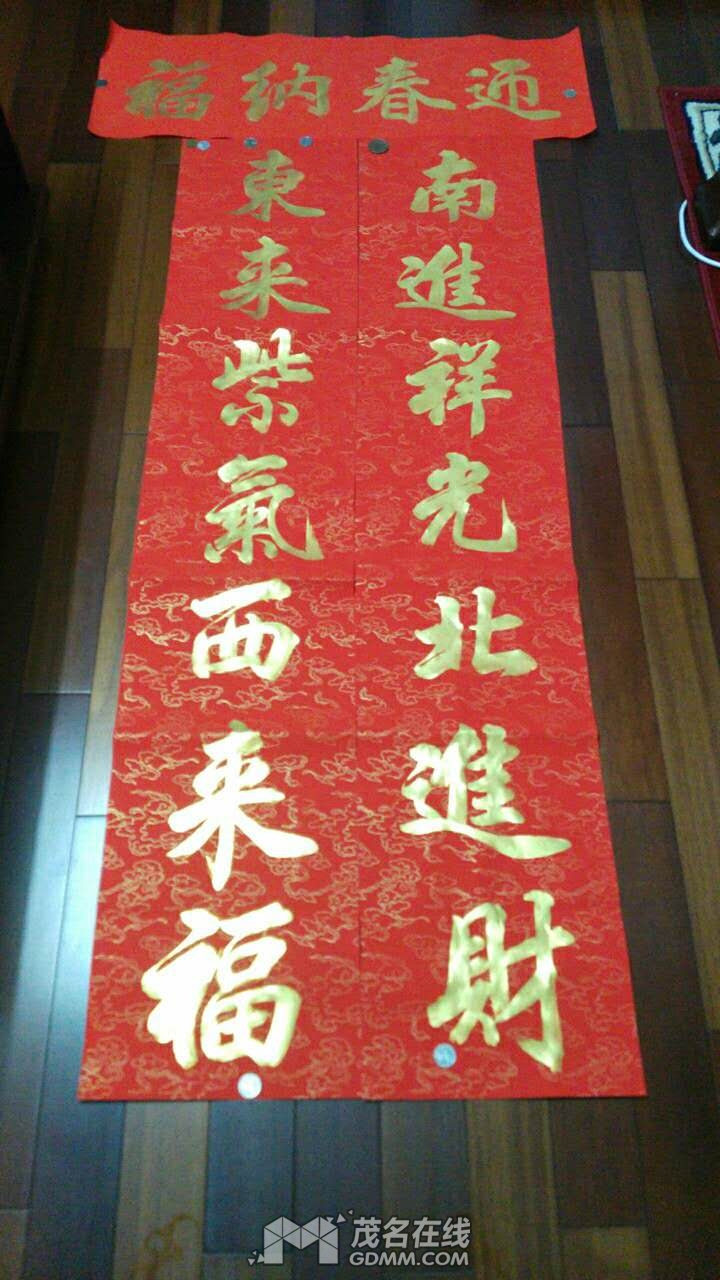 迎春納福
南進祥光北進財
東来紫氣西来福
茂名在线
GDMM.COM